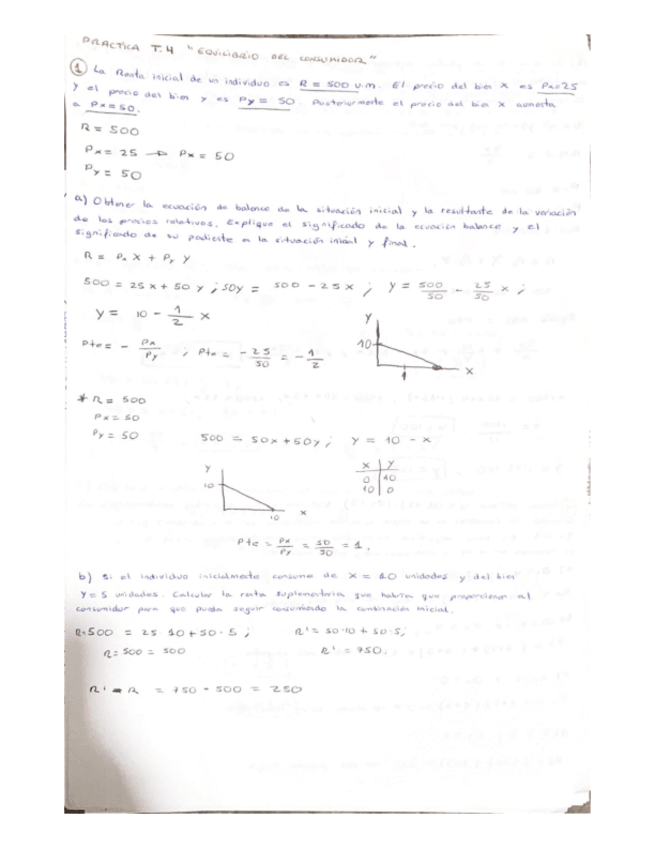 PRACTICA T.4 "EQUILIBRIO DEL CONSUMIDOR"
① La Renta inicial de un individuo es R = 500 u.m. El precio del bien X es Px=25
y el precio del bien y es Py = 50. Posteriormente el precio del bien X aumenta
a Px=50.
R = 500
Px = 25 → Px = 50
Py = 50
a) Obtener la ecuación de balance de la situación inicial y la resultante de la variación
de los precios relativos. Explique el significado de la ecuación balance y el
significado de su pendiente en la situación inicial y final.
R = Px X + Py Y
500 = 25 x + 50 y ; 50y = 500 - 25 x ; y = 500/50 - 25/50 x ;
y = 10 - 1/2 x
Pte = - Px/Py ; Pte = -25/50 = -1/2
Y
10
X
* R = 500
Px = 50
Py = 50
500 = 50x + 50y ; y = 10 - x
X Y
0 10
10 0
Y
10
10 X
Pte = Px/Py = 50/50 = 1.
b) Si el individuo inicialmente consume de X = 10 unidades y del bien
Y = 5 unidades. Calcular la renta suplementaria que habría que proporcionar al
consumidor para que pueda seguir consumiendo la combinación inicial.
R=500 = 25·10+50·5 ; R' = 50·10 + 50·5;
R= 500 = 500 R' = 750.
R' - R = 750 - 500 = 250